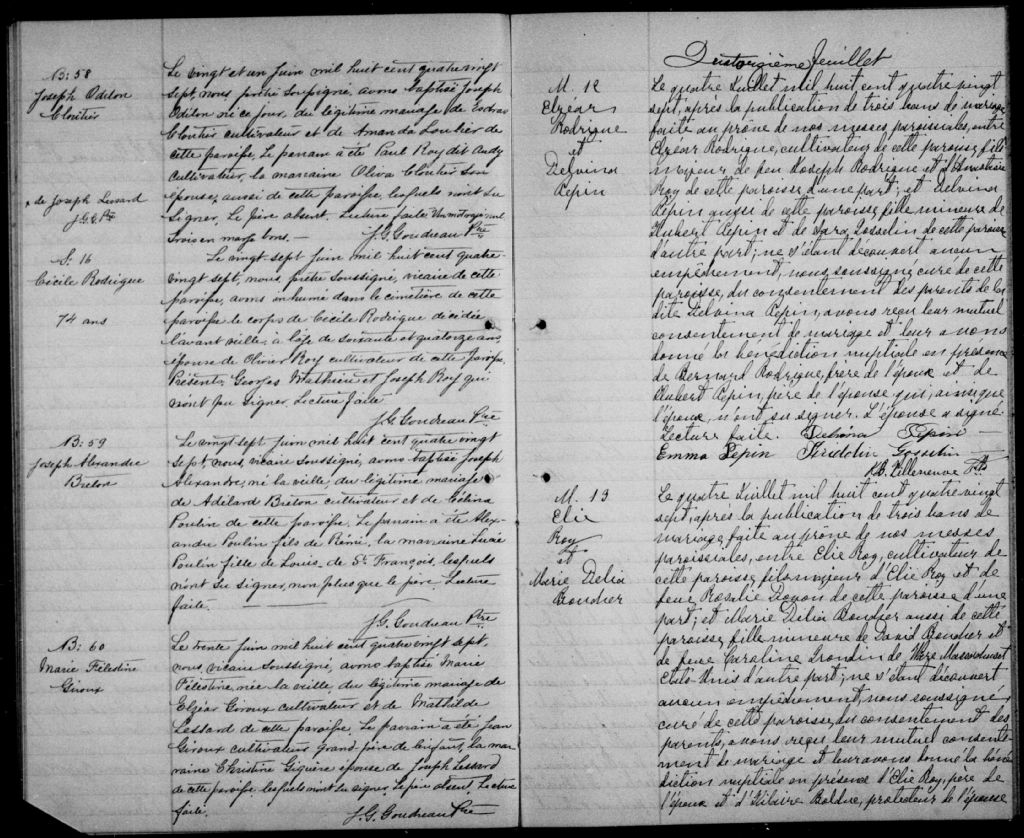 B: 58
Joseph Odilon
Cloutier
Le vingt et un Juin mil huit cent quatre vingt
sept, nous prêtre soussigné, avons baptisé Joseph
Odilon né ce jour, du légitime mariage de
Cloutier cultivateur et de Amanda Loubier de
cette paroisse. Le parrain a été Paul Roy dit Audy
cultivateur, la marraine Oliva Cloutier son
épouse, aussi de cette paroisse, lesquels n'ont su
signer. Le père absent. Lecture faite.
trois en marge bons. — J. G. Goudreau Ptre
x de Joseph
J.G.G. Ptre
S. 16
Cécile Rodrigue
74 ans
Le vingt sept Juin mil huit cent quatre-
vingt sept, nous, prêtre soussigné, vicaire de cette
paroisse, avons inhumé dans le cimetière de cette
paroisse le corps de Cécile Rodrigue décédée
l'avant veille, à l'âge de soixante et quatorze ans,
épouse de Olivier Roy cultivateur de cette paroisse.
Présents Georges Mathieu et Joseph Roy qui
n'ont pu signer. Lecture faite
J.G. Goudreau Ptre
B: 59
Joseph Alexandre
Breton
Le vingt sept Juin mil huit cent quatre vingt
sept, nous, vicaire soussigné, avons baptisé Joseph
Alexandre, né la veille, du légitime mariage
de Adélard Breton cultivateur et de Célina
Poulin de cette paroisse. Le parrain a été Alex-
andre Poulin fils de Rémi, la marraine Lucie
Poulin fille de Louis, de St François, lesquels
n'ont su signer, non plus que le père. Lecture
faite.
J.G. Goudreau Ptre
B: 60
Marie Félestine
Giroux
Le trente Juin mil huit cent quatre vingt sept,
nous vicaire soussigné, avons baptisé Marie
Félestine, née la veille, du légitime mariage de
Elzéar Giroux cultivateur et de Mathilde
Lessard de cette paroisse. Le parrain a été Jean
Giroux cultivateur grand-père de l'enfant, la mar-
raine Christine Giguère épouse de Joseph Lessard
de cette paroisse lesquels n'ont su signer. Le père absent. Lecture
faite. J.G. Goudreau Ptre
Feuillet
M. 12
Elzear
Rodrigue
et
Delvina
Pepin
Le quatre Juillet mil huit cent quatre vingt
sept, après la publication de trois bans de mariage
faite au prône de nos messes paroissiales, entre
Elzear Rodrigue, cultivateur de cette paroisse, fils
majeur de feu Joseph Rodrigue et d'
Roy de cette paroisse d'une part; et Delvina
Pepin aussi de cette paroisse, fille mineure de
Hubert Pepin et de Sara Gosselin de cette paroisse
d'autre part; ne s'étant découvert aucun
empêchement, nous, soussigné curé de cette
paroisse, du consentement des parents de la
dite Delvina Pepin, avons reçu leur mutuel
consentement de mariage et leur avons
donné la bénédiction nuptiale en présence
de Bernard Rodrigue, frère de l'époux et de
Hubert Pepin, père de l'épouse qui, ainsi que
l'époux, n'ont su signer. L'épouse a signé.
Lecture faite. Delvina Pepin
Emma Pepin Gosselin
Villeneuve Ptre
M. 13
Elie
Roy
et
Marie Delia
Boucher
Le quatre Juillet mil huit cent quatre vingt
sept, après la publication de trois bans de
mariage, faite au prône de nos messes
paroissiales, entre Elie Roy, cultivateur de
cette paroisse, fils majeur d'Elie Roy et de
feue Rosalie Doyon de cette paroisse d'une
part; et Marie Delia Boucher aussi de cette
paroisse, fille mineure de David Boucher et
de feue Caroline de Ware Massachusett
Etats-Unis d'autre part; ne s'étant découvert
aucun empêchement, nous soussigné
curé de cette paroisse, du consentement des
parents, avons reçu leur mutuel consente-
ment de mariage et leur avons donné la béné-
diction nuptiale en présence d'Elie Roy, père de
l'époux et d'Hilaire Bolduc, protecteur de l'épouse